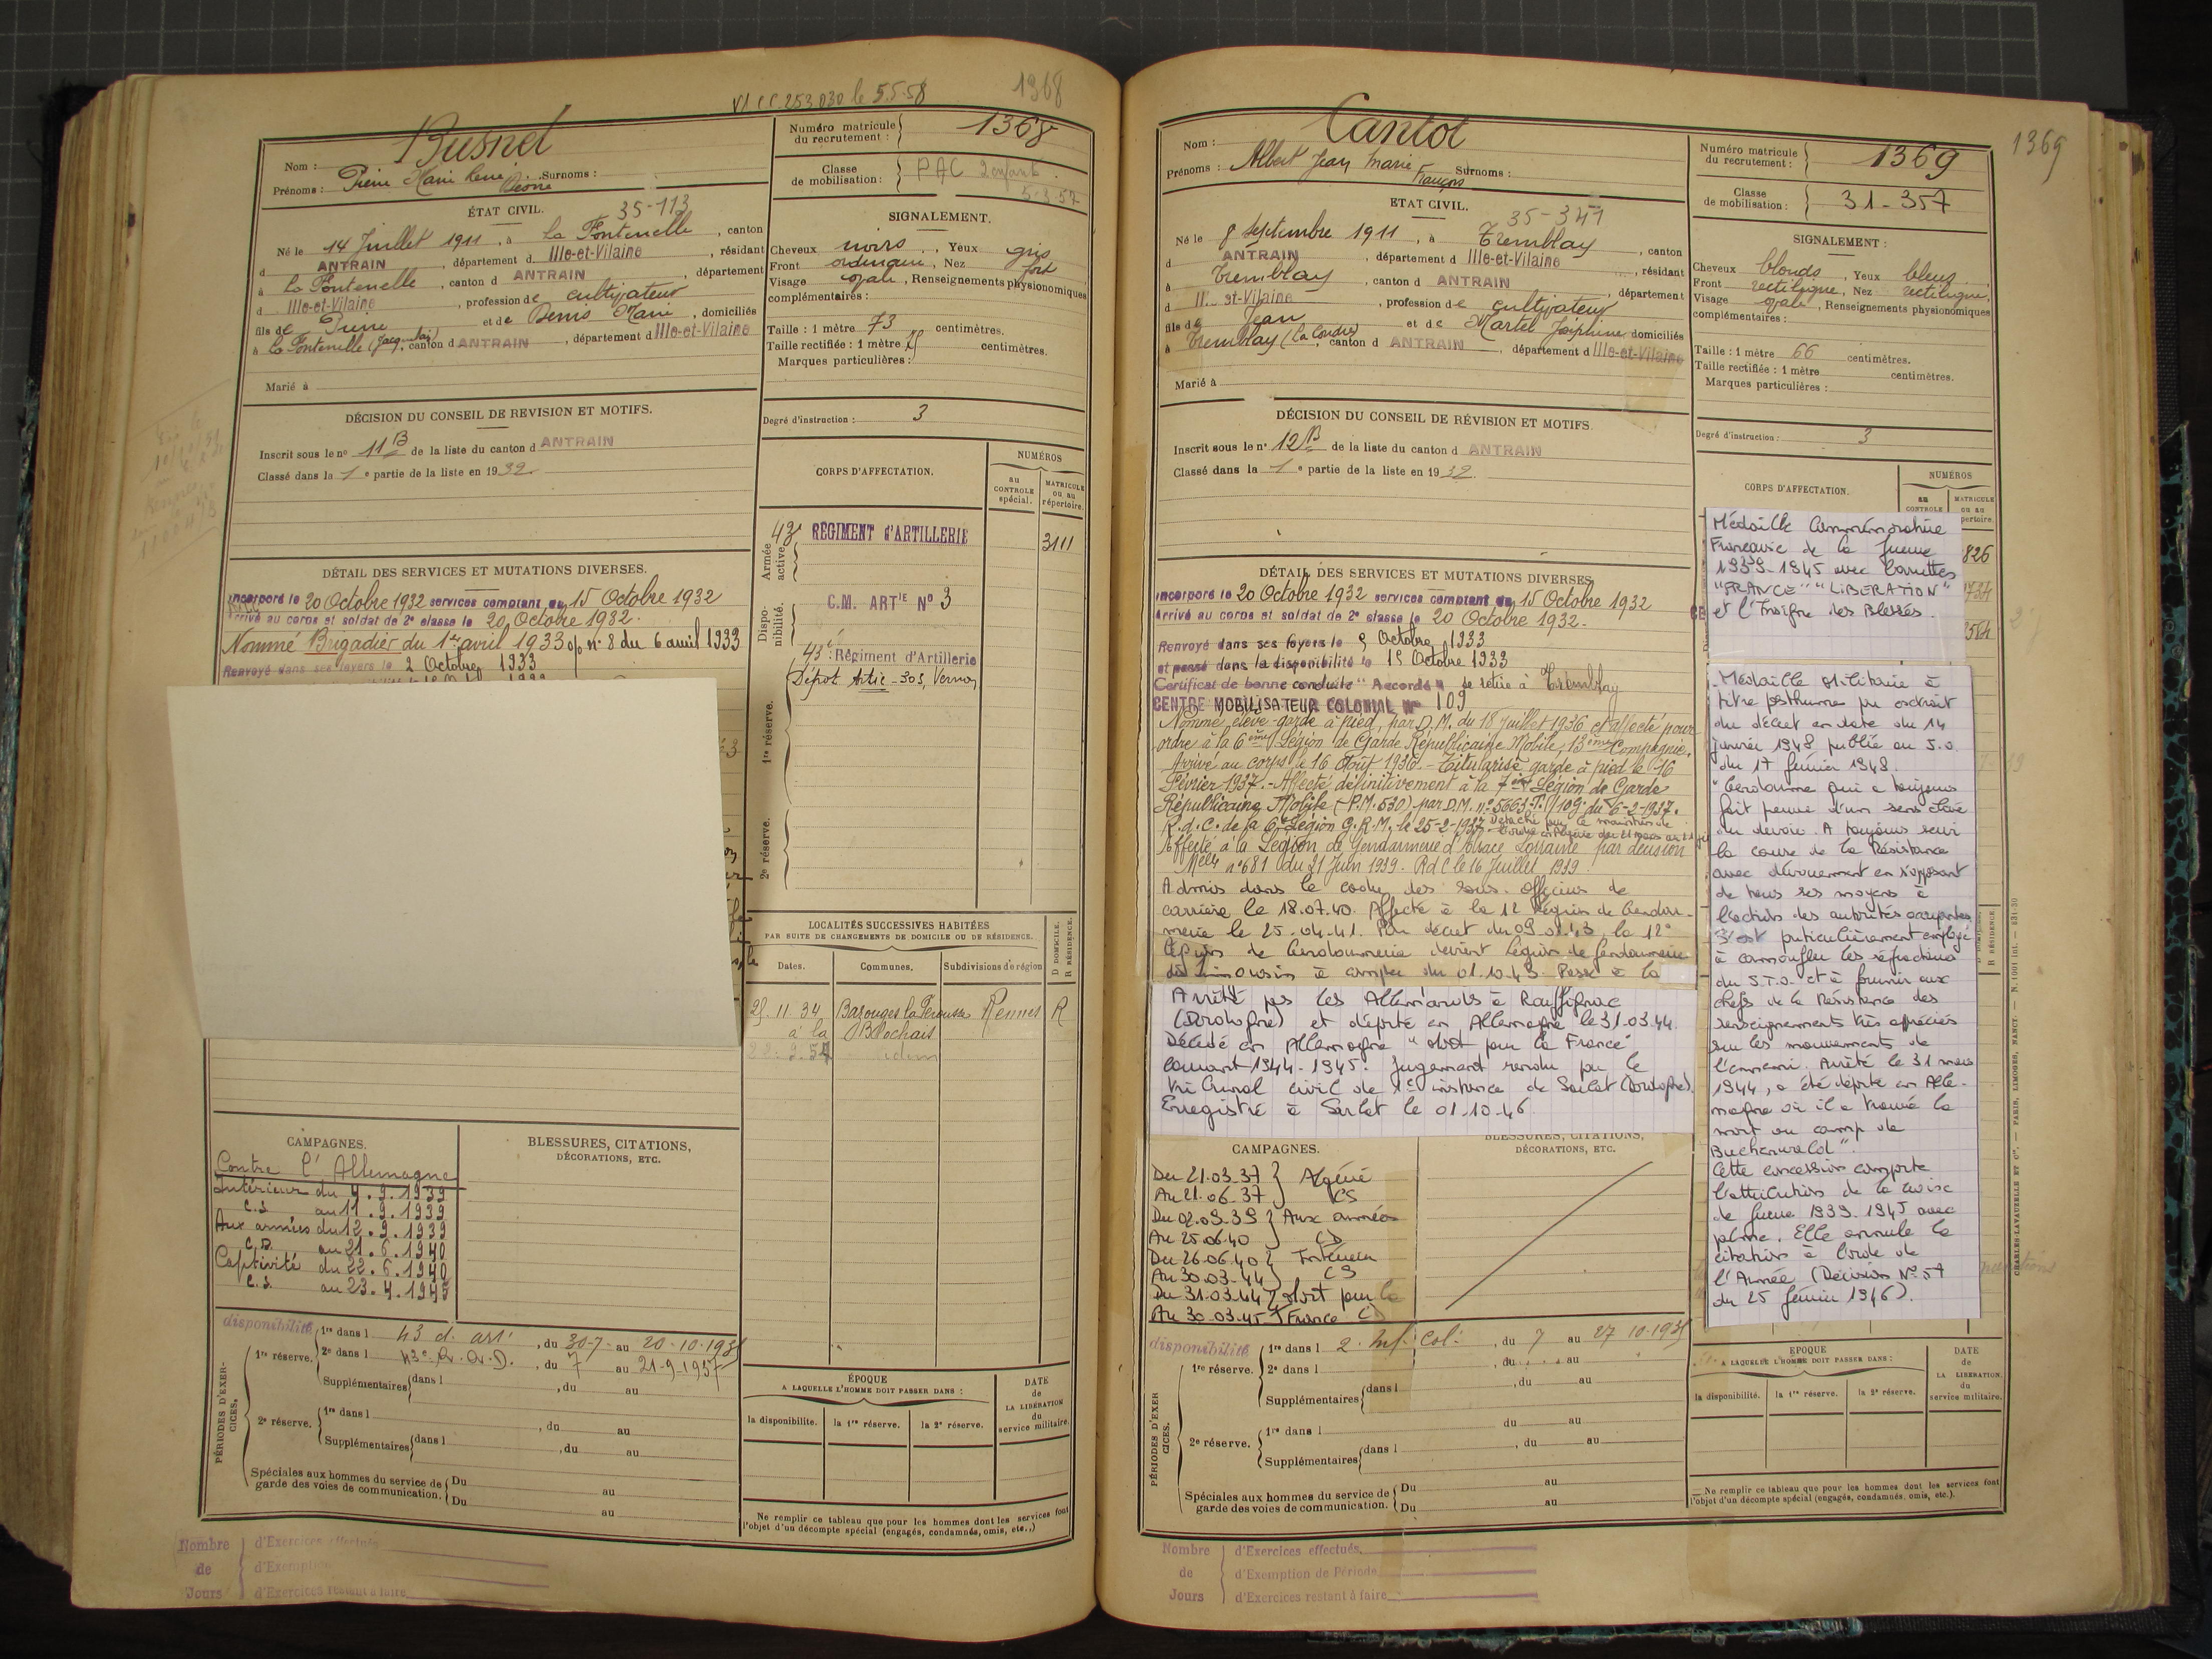 VI CC 253.030 le 5.5.58
1368
Nom : Busnel
Prénoms : Pierre Marie René Surnoms :
Numéro matricule du recrutement : 1368
Classe de mobilisation : PAC 2 enfants
5.3.57
ÉTAT CIVIL.
35-113
Né le 14 Juillet 1911, à La Fontenelle, canton
d ANTRAIN, département d Ille-et-Vilaine, résidant
à La Fontenelle, canton d ANTRAIN, département
d Ille-et-Vilaine, profession de cultivateur
fils de Pierre et de Denis Marie, domiciliés
à La Fontenelle, canton d ANTRAIN, département d Ille-et-Vilaine
Marié à
SIGNALEMENT.
Cheveux noirs, Yeux gris
Front ordinaire, Nez fort
Visage ovale, Renseignements physionomiques
complémentaires :
Taille : 1 mètre 73 centimètres.
Taille rectifiée : 1 mètre centimètres.
Marques particulières :
Degré d'instruction : 3
DÉCISION DU CONSEIL DE REVISION ET MOTIFS.
Inscrit sous le no 11 B de la liste du canton d ANTRAIN
Classé dans la 1e partie de la liste en 1932.
CORPS D'AFFECTATION.
NUMÉROS
au CONTROLE spécial.
MATRICULE ou au répertoire.
Armée active
43e RÉGIMENT d'ARTILLERIE 3111
Disponibilité.
C.M. ARTIE No 3
43e Régiment d'Artillerie
Dépôt Artie - 303, Vernon
1re réserve.
2e réserve.
DÉTAIL DES SERVICES ET MUTATIONS DIVERSES.
Incorporé le 20 Octobre 1932 services comptant du 15 Octobre 1932
Arrivé au corps et soldat de 2e classe le 20 Octobre 1932.
Nommé Brigadier du 1er avril 1933 o/ n° 8 du 6 avril 1933
Renvoyé dans ses foyers le 2 Octobre 1933
LOCALITÉS SUCCESSIVES HABITÉES
PAR SUITE DE CHANGEMENTS DE DOMICILE OU DE RÉSIDENCE.
Dates. Communes. Subdivisions de région
D DOMICILE. R RÉSIDENCE.
25.11.34 Bazouges la Pérouse Rennes R
à la
CAMPAGNES.
Contre l'Allemagne
Intérieur du 4.9.1939
C.S. au 11.9.1939
Aux armées du 12.9.1939
C.D. au 21.6.1940
Captivité du 22.6.1940
C.S. au 23.4.1945
BLESSURES, CITATIONS,
DÉCORATIONS, ETC.
PÉRIODES D'EXERCICES.
disponibilité
1re réserve.
1re dans l 43 d. art, du 30-7 au 20-10-193
2e dans l 43e, du 7 au 21-9-1937
Supplémentaires dans l , du au
2e réserve.
1re dans l , du au
Supplémentaires dans l , du au
Spéciales aux hommes du service de garde des voies de communication. Du au
Du au
ÉPOQUE
A LAQUELLE L'HOMME DOIT PASSER DANS :
la disponibilité. la 1re réserve. la 2e réserve.
DATE de LA LIBÉRATION du service militaire.
Ne remplir ce tableau que pour les hommes dont les services font
l'objet d'un décompte spécial (engagés, condamnés, omis, etc.,)
Nombre de Jours
d'Exercices effectués
d'Exemption
d'Exercices restant à faire
1369
Nom : Cantot
Prénoms : Albert Jean Marie François Surnoms :
Numéro matricule du recrutement : 1369
Classe de mobilisation : 31-357
ETAT CIVIL.
35-347
Né le 8 Septembre 1911, à Tremblay, canton
d ANTRAIN, département d Ille-et-Vilaine, résidant
à Tremblay, canton d ANTRAIN, département
d Il et-Vilaine, profession de cultivateur
fils de Jean et de Martel Joséphine, domiciliés
à Tremblay, canton d ANTRAIN, département d Ille-et-Vilaine
Marié à
SIGNALEMENT :
Cheveux blonds, Yeux bleus
Front rectiligne, Nez rectiligne,
Visage ovale, Renseignements physionomiques
complémentaires :
Taille : 1 mètre 66 centimètres.
Taille rectifiée : 1 mètre centimètres.
Marques particulières :
Degré d'instruction : 3
DÉCISION DU CONSEIL DE RÉVISION ET MOTIFS.
Inscrit sous le n° 12 B de la liste du canton d ANTRAIN
Classé dans la 1e partie de la liste en 1932.
CORPS D'AFFECTATION.
NUMÉROS
au CONTROLE
MATRICULE ou au
826
DÉTAIL DES SERVICES ET MUTATIONS DIVERSES
Incorporé le 20 Octobre 1932 services comptant du 15 Octobre 1932
Arrivé au corps et soldat de 2e classe le 20 Octobre 1932.
Renvoyé dans ses foyers le 9 Octobre 1933
et passé dans la disponibilité le 15 Octobre 1933
Certificat de bonne conduite "Accordé" se retire à Tremblay
CENTRE MOBILISATEUR COLONIAL N° 109
Nommé élève-garde à pied, par D.M. du 18 juillet 1936 et affecté pour
ordre à la 6ème Légion de Garde Républicaine Mobile, 13ème Compagnie.
Arrivé au corps le 16 Août 1936 - Titularisé garde à pied le 16
Février 1937. - Affecté définitivement à la 7ème Légion de Garde
Républicaine Mobile (P.M. 530) par D.M. n° 5663-T./10G. du 6-2-1937.
R.d.C. de la 6e Légion G.R.M. le 25-2-1937
Affecté à la Légion de Gendarmerie d'Alsace Lorraine par décision
Melle n° 681 du 21 Juin 1939. RdC le 16 Juillet 1939
Admis dans le cadre des sous-officiers de
carrière le 18.07.40. Affecté à la 12 Légion de Gendar-
merie le 25-04-41. Par décret du 09.01.43, la 12e
Légion de Gendarmerie devient Légion de Gendarmerie
du Limousin à compter du 01.10.43. Passe à la
Arrêté par les Allemands à Rouffignac
(Dordogne) et déporté en Allemagne le 31.03.44.
Décédé en Allemagne "Mort pour la France"
courant 1944-1945. Jugement rendu par le
Tribunal civil de 1e instance de Sarlat (Dordogne).
Enregistré à Sarlat le 01-10-46
Médaille Commémorative
Française de la Guerre
1939-1945 avec Barrettes
"FRANCE" "LIBERATION"
et l'Insigne des Blessés.
Médaille Militaire à
titre posthume par extrait
du décret en date du 14
janvier 1948 publié au J.O.
du 17 février 1948.
"Gendarme qui a toujours
fait preuve d'un sens élevé
du devoir. A toujours servi
la cause de la Résistance
avec dévouement en s'opposant
de tous ses moyens à
l'action des autorités occupantes
S'est particulièrement employé
à camoufler les réfractaires
du S.T.O. et à fournir aux
chefs de la Résistance des
renseignements très appréciés
sur les mouvements de
l'ennemi. Arrêté le 31 mars
1944, a été déporté en Alle-
magne où il a trouvé la
mort au camp de
Buchenwald".
Cette concession comporte
l'attribution de la Croix
de Guerre 1939-1945 avec
palme. Elle annule la
citation à l'ordre de
l'Armée (Décision N° 57
du 25 février 1946).
CAMPAGNES.
Du 21.03.37 Algérie
Au 21.06.37 CS
Du 02.09.39 Aux armées
Au 25.06.40 CD
Du 26.06.40 Intérieur
Au 30.03.44 CS
Du 31.03.44 Mort pour la
Au 30.03.45 France CD
BLESSURES, CITATIONS,
DÉCORATIONS, ETC.
PÉRIODES D'EXERCICES.
disponibilité
1re réserve.
1re dans l 2. Inf. Col., du 7 au 27 10-193
2e dans l du au
Supplémentaires dans l , du au
2e réserve.
1re dans l du au
Supplémentaires dans l , du au
Spéciales aux hommes du service de garde des voies de communication. Du au
Du au
EPOQUE
A LAQUELLE L'HOMME DOIT PASSER DANS :
la disponibilité. la 1re réserve. la 2e réserve.
DATE de LA LIBÉRATION du service militaire.
Ne remplir ce tableau que pour les hommes dont les services font
l'objet d'un décompte spécial (engagés, condamnés, omis, etc.).
R RÉSIDENCE.
CHARLES-LAVAUZELLE ET Cie. — PARIS, LIMOGES, NANCY. — N. 1001 int. — 831-30
Nombre de Jours
d'Exercices effectués
d'Exemption de Période
d'Exercices restant à faire